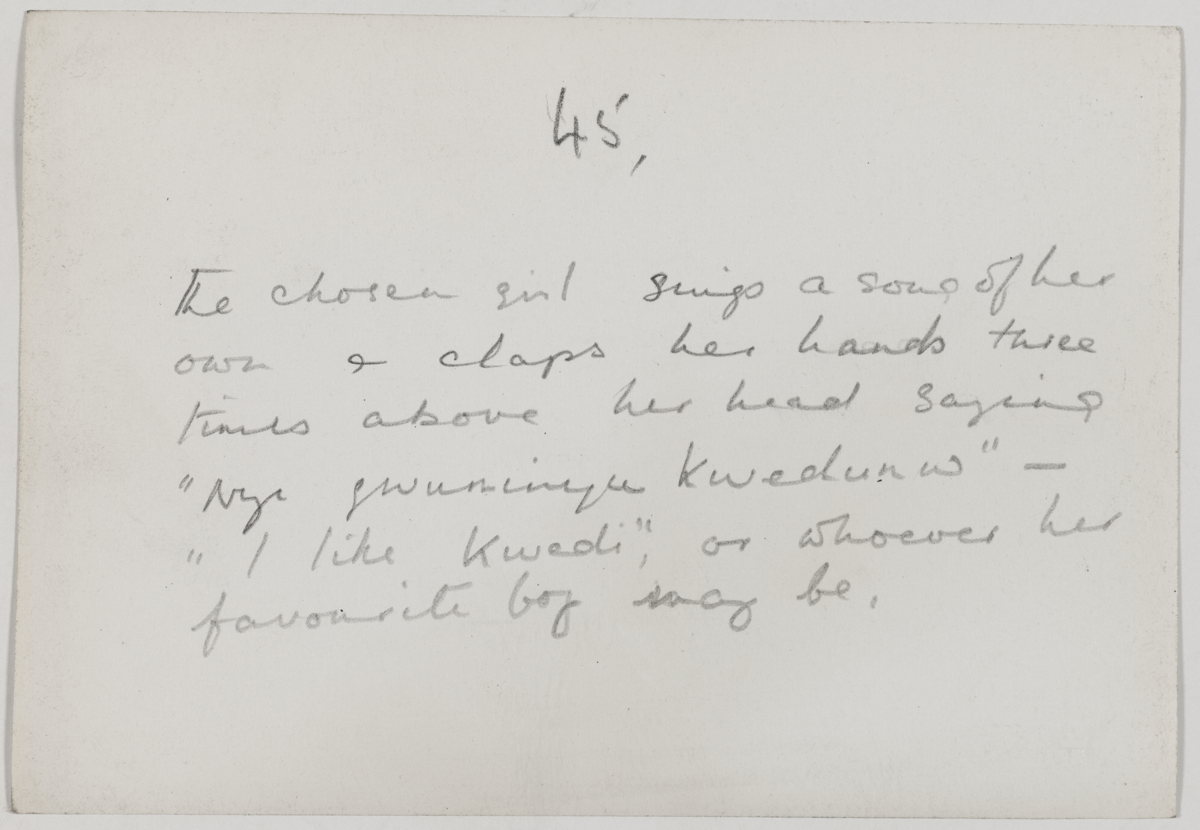 45,
The chosen girl sings a song of her
own & claps her hands three
times above her head saying
"Nyi gwuninyu Kwedunw" —
" I like Kwedi", or whoever her
favourite boy may be.